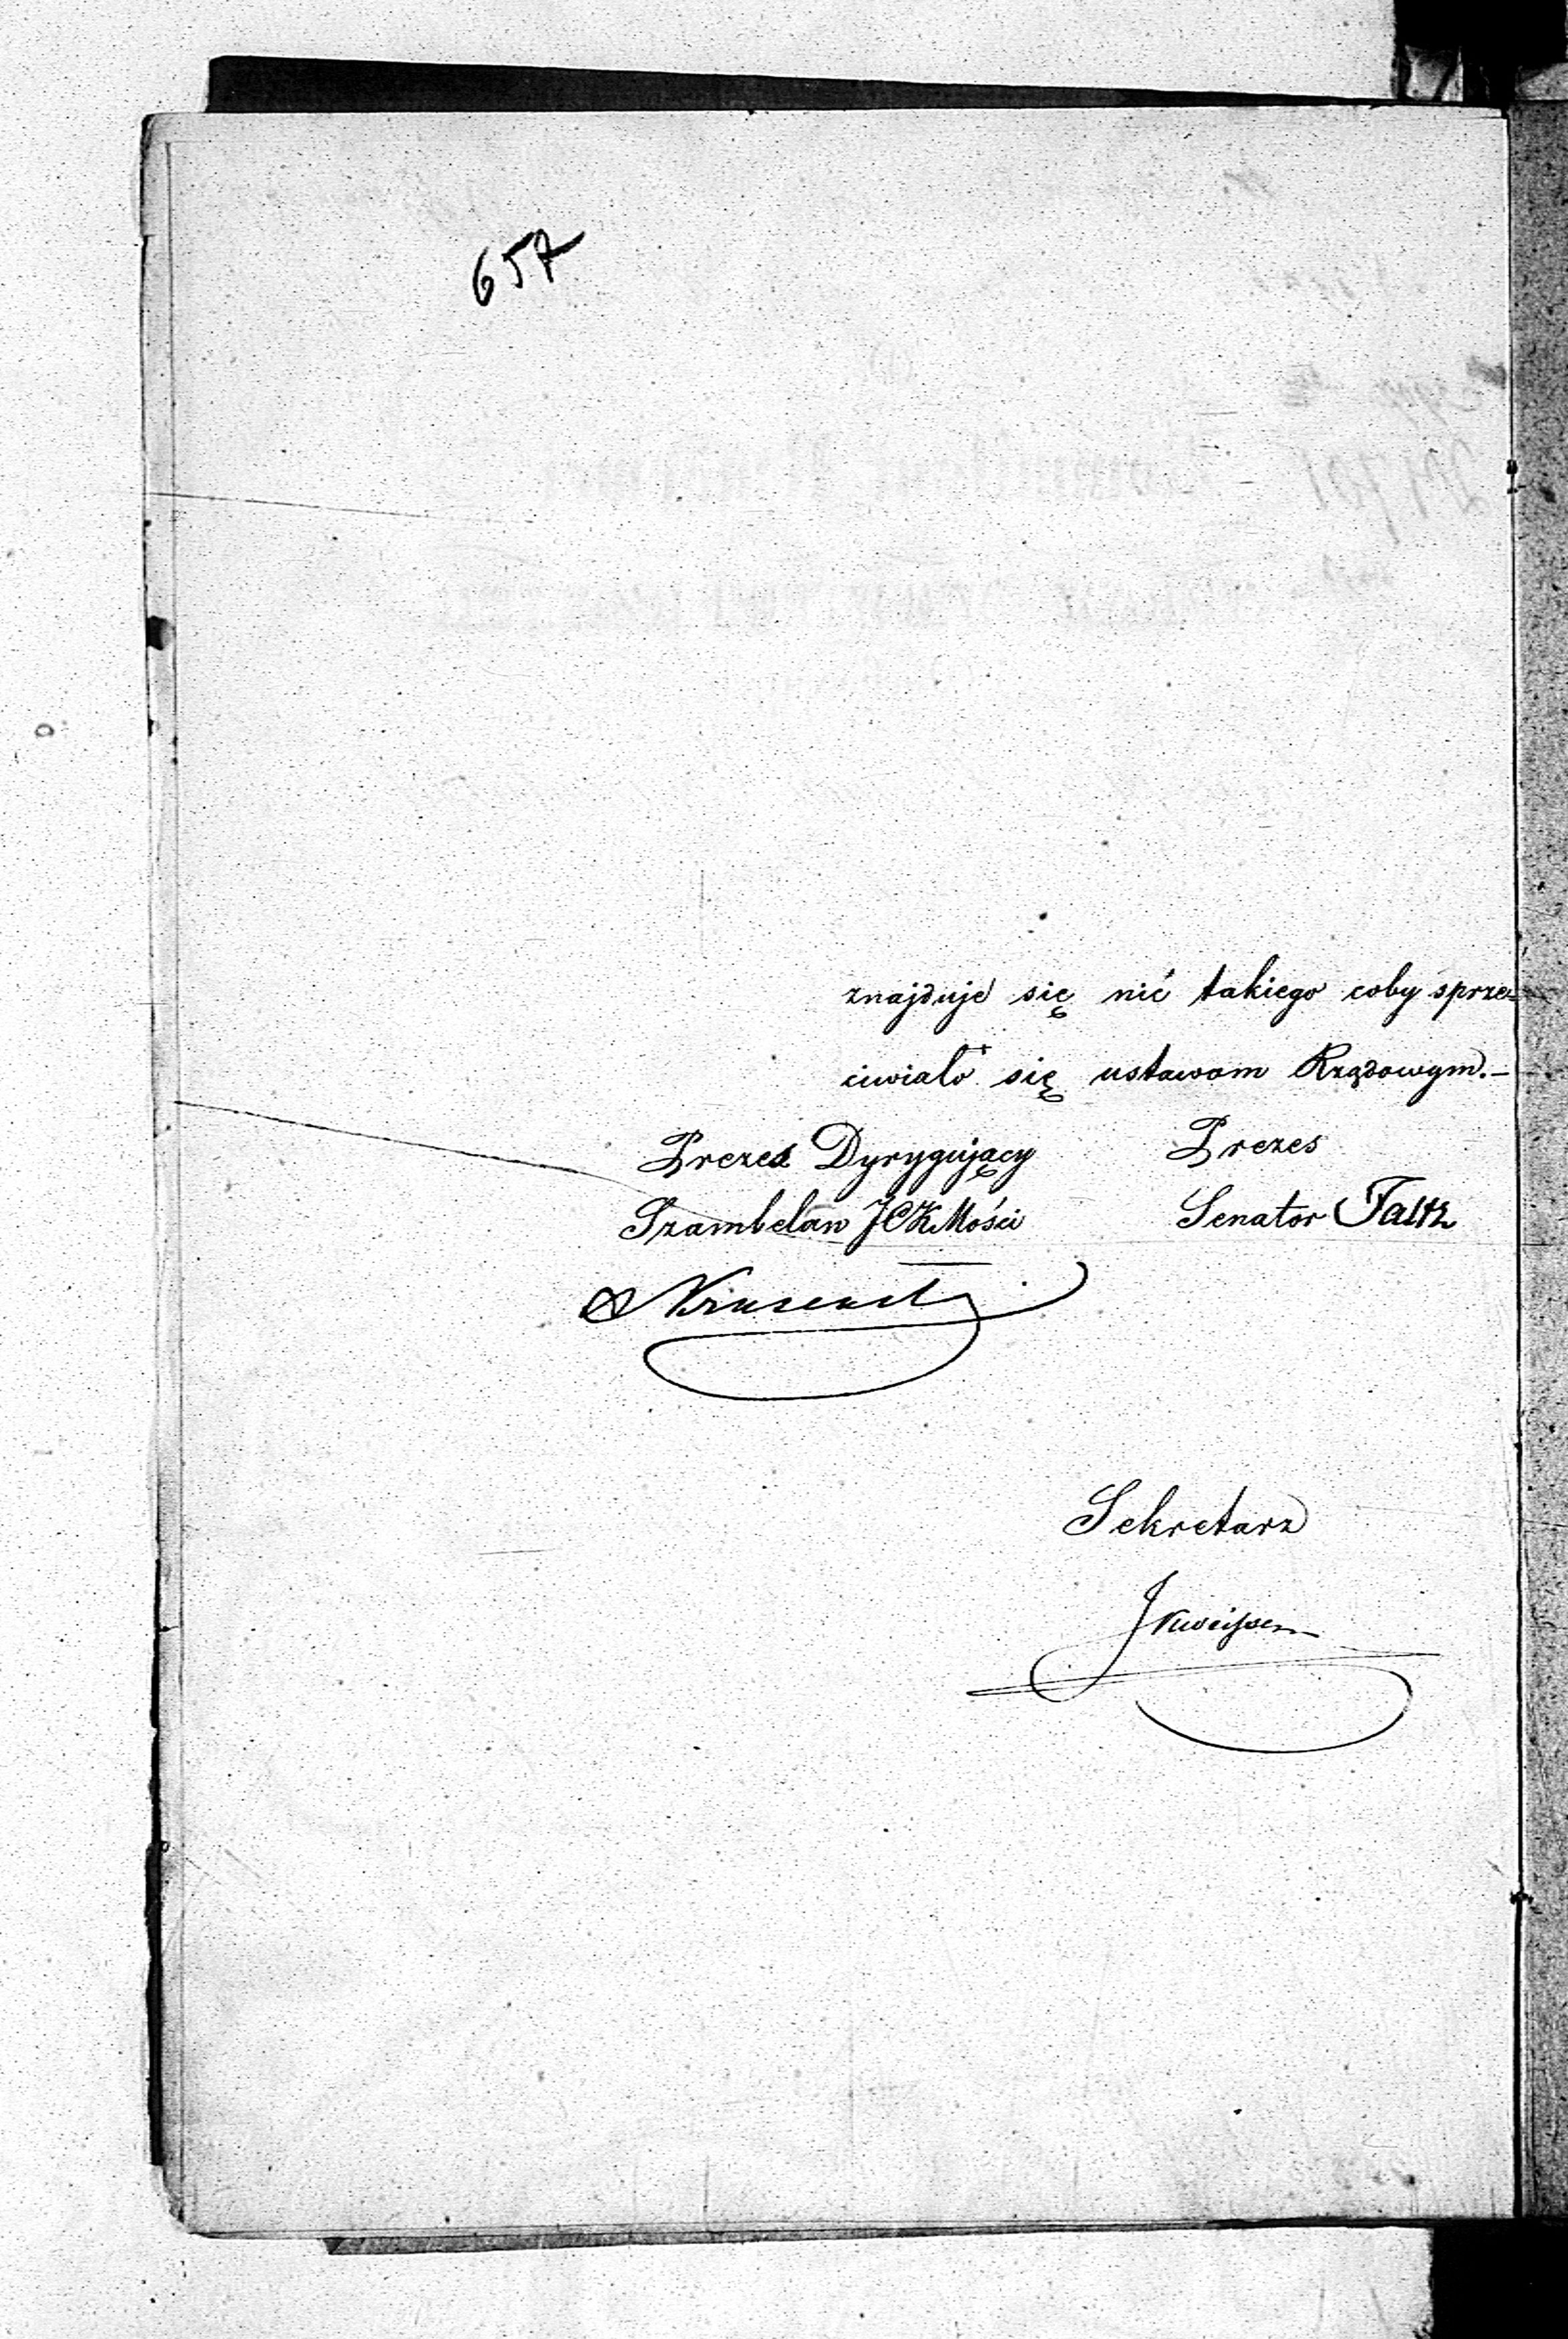 657
znajduje się nić takiego coby sprze=
ciwiało się ustawom Rządowym.–
Prezes Dyrygujący
Prezes
Szambelan JCKMości
Senator Faltz
Sekretarz